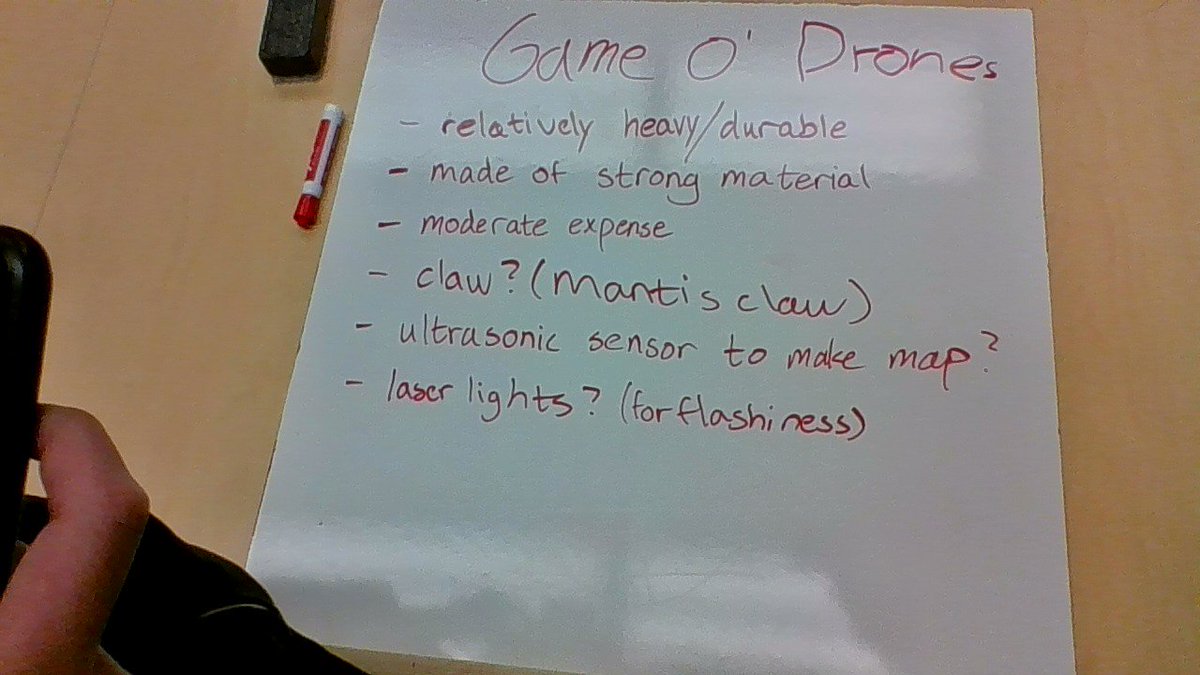 Game O' Drones
- relatively heavy/durable
- made of strong material
- moderate expense
- claw? (Mantis claw)
- ultrasonic sensor to make map?
- laser lights? (for flashiness)